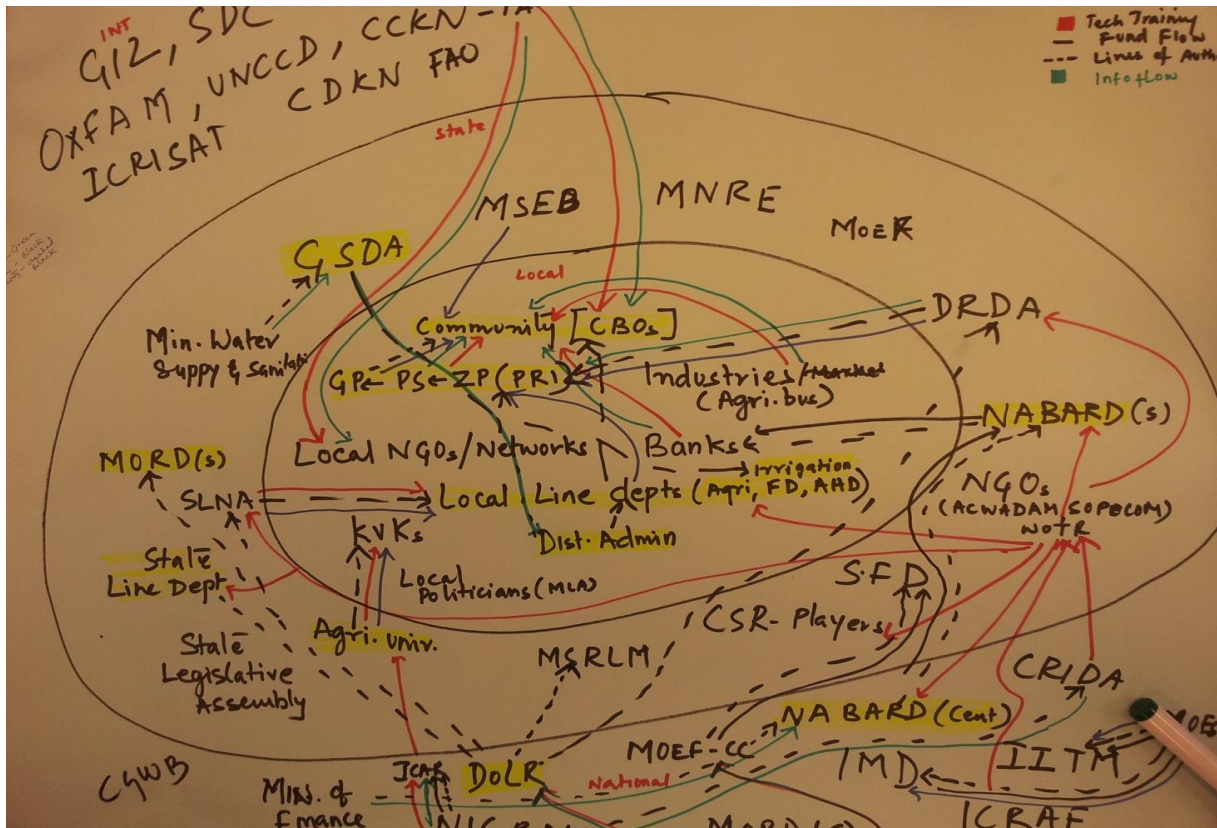 INT
GIZ, SDC
OXFAM, UNCCD, CCKN-IA
ICRISAT CDKN FAO
Tech Training
Fund Flow
Lines of Auth
Info flow
State
MSEB
MNRE
MOEF
GSDA
Local
DRDA
Min. Water
Suppy & Sanitati
Community [CBOs]
GP PS ZP (PRI)
Industries/Market
(Agri.bus)
NABARD (s)
Local NGOs/Networks
Banks
Irrigation
MORD(s)
SLNA
Local Line depts (Agri, FD, AHD)
NGOs
(ACWADAM, SOPECOM)
WOTR
KVKs
Dist. Admin
State
Line Dept
Local
Politicians (MLA)
S.F.D
CSR-Players
Agri. Univ.
State
Legislative
Assembly
MSRLM
CRIDA
NABARD (Cent)
MOEF-CC
IMD
IITM
MOES
CGWB
ICAR
DoLR
National
Mins. of
Finance
ICRAF